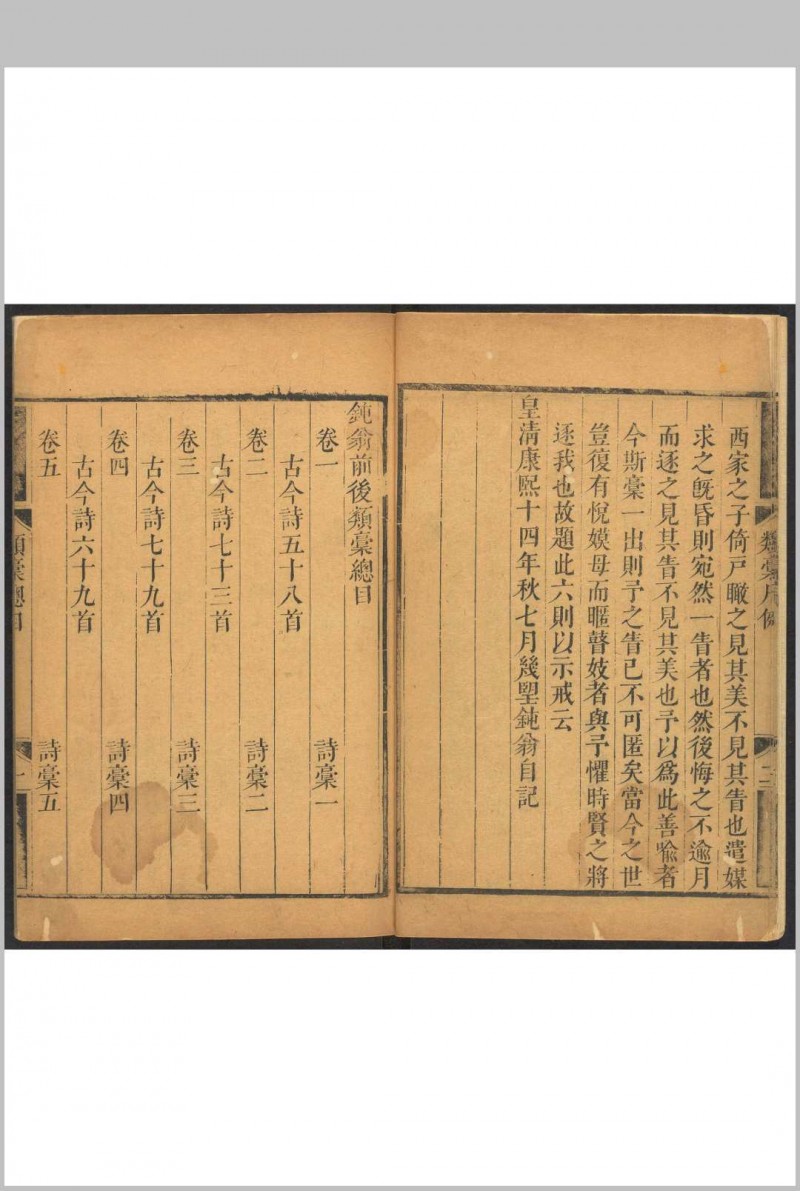 西家之子倚戸瞰之見其美不見其眚也遣媒
求之旣昏則宛然一眚者也然後悔之不逾月
而逐之見其眚不見其美也予以爲此善喩者
今斯稾一出則予之眚已不可匿矣當今之世
豈復有悅嫫母而暱瞽妓者與予懼時賢之將
逐我也故題此六則以示戒云
皇清康熙十四年秋七月幾朢鈍翁自記
二
鈍翁前後類稾總目
卷一　詩稾一
古今詩五十八首
卷二　詩稾二
古今詩七十三首
卷三　詩稾三
古今詩七十九首
卷四　詩稾四
古今詩六十九首
卷五　詩稾五
類稾總目
一